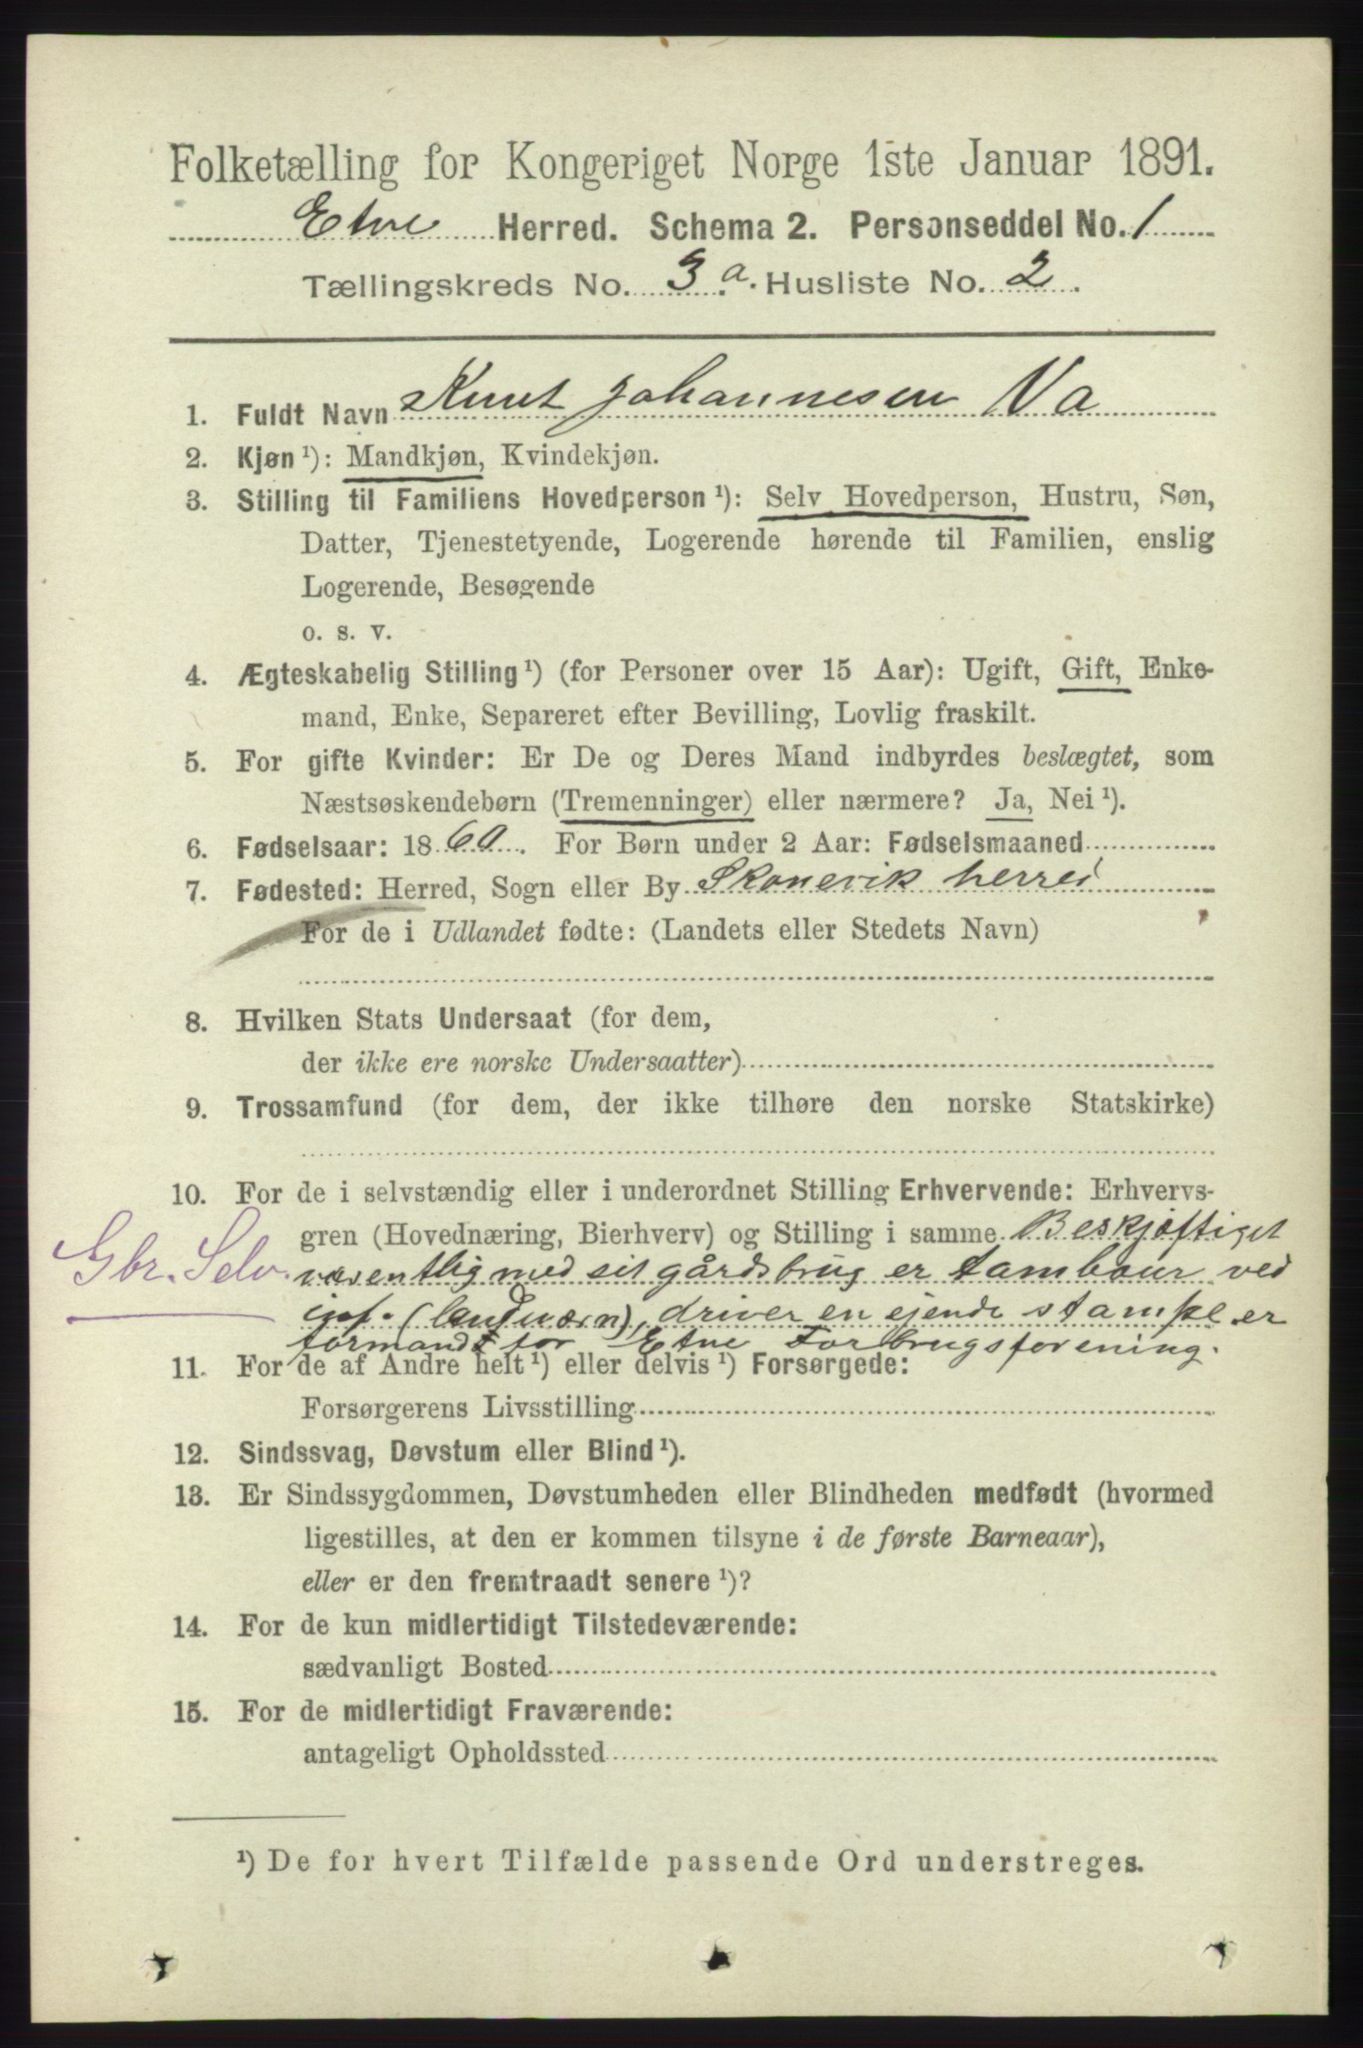 Folketælling for Kongeriget Norge 1ste Januar 1891.
Etne Herred. Schema 2. Personseddel No. 1
Tællingskreds No. 3 a. Husliste No. 2.
1. Fuldt Navn Knut Johannesen Va
2. Kjøn ¹): Mandkjøn, Kvindekjøn.
3. Stilling til Familiens Hovedperson ¹): Selv Hovedperson, Hustru, Søn,
Datter, Tjenestetyende, Logerende hørende til Familien, enslig
Logerende, Besøgende
o. s. v.
4. Ægteskabelig Stilling ¹) (for Personer over 15 Aar): Ugift, Gift, Enke-
mand, Enke, Separeret efter Bevilling, Lovlig fraskilt.
5. For gifte Kvinder: Er De og Deres Mand indbyrdes beslægtet, som
Næstsøskendebørn (Tremenninger) eller nærmere? Ja, Nei ¹).
6. Fødselsaar: 1860. For Børn under 2 Aar: Fødselsmaaned
7. Fødested: Herred, Sogn eller By Skonevik herred
For de i Udlandet fødte: (Landets eller Stedets Navn)
8. Hvilken Stats Undersaat (for dem,
der ikke ere norske Undersaatter)
9. Trossamfund (for dem, der ikke tilhøre den norske Statskirke)
10. For de i selvstændig eller i underordnet Stilling Erhvervende: Erhvervs-
gren (Hovednæring, Bierhverv) og Stilling i samme Beskjæftiget
Gbr. Selv. væsentlig med sit gårdsbrug er tambour ved
inf. (landværn), driver en ejende stampe er
formand for Etne Forbrugsforening.
11. For de af Andre helt ¹) eller delvis ¹) Forsørgede:
Forsørgerens Livsstilling
12. Sindssvag, Døvstum eller Blind ¹).
13. Er Sindssygdommen, Døvstumheden eller Blindheden medfødt (hvormed
ligestilles, at den er kommen tilsyne i de første Barneaar),
eller er den fremtraadt senere ¹)?
14. For de kun midlertidigt Tilstedeværende:
sædvanligt Bosted
15. For de midlertidigt Fraværende:
antageligt Opholdssted
¹) De for hvert Tilfælde passende Ord understreges.